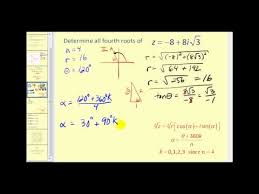 Determine all fourth roots of z = -8 + 8i√3
n = 4
r = 16
θ = 120°
r = √((-8)² + (8√3)²)
r = √64 + 192
r = √256 = 16
tanθ = 8√3/-8 = √3/-1
α = (120° + 360°k)/4
α = 30° + 90°k
ⁿ√z = ⁿ√r [cos(α) + i sin(α)]
α = (θ + 360k)/n
k = 0,1,2,3 since n = 4